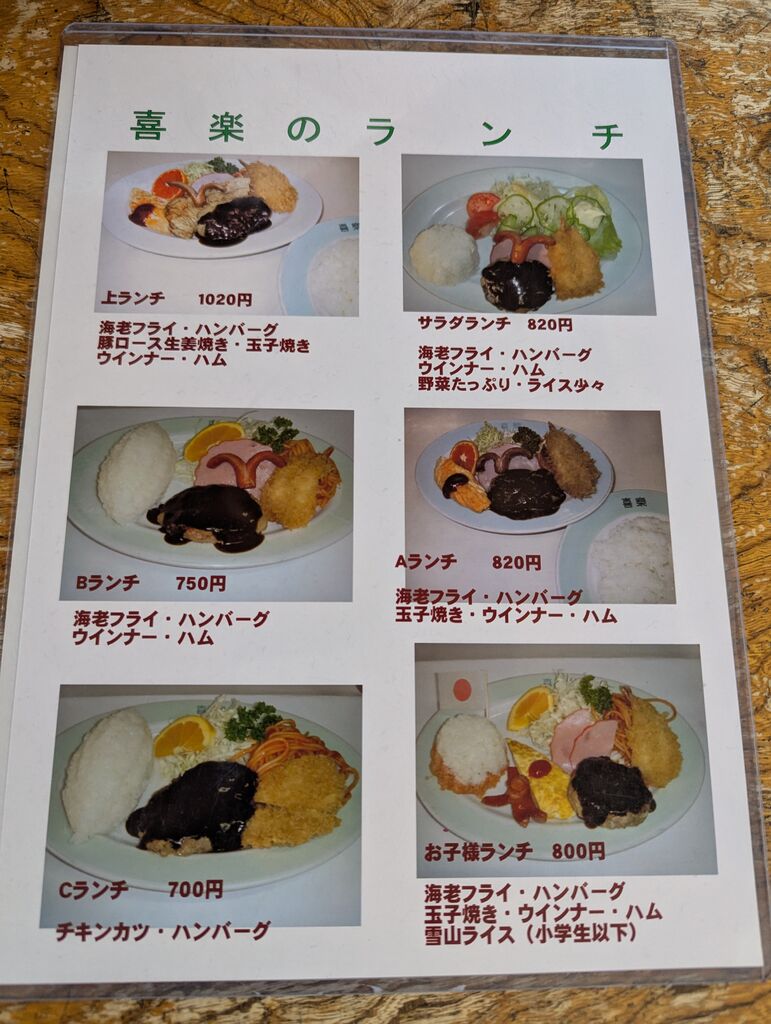 喜楽のランチ
上ランチ 1020円
海老フライ・ハンバーグ
豚ロース生姜焼き・玉子焼き
ウインナー・ハム
サラダランチ 820円
海老フライ・ハンバーグ
ウインナー・ハム
野菜たっぷり・ライス少々
Bランチ 750円
海老フライ・ハンバーグ
ウインナー・ハム
喜楽
Aランチ 820円
海老フライ・ハンバーグ
玉子焼き・ウインナー・ハム
Cランチ 700円
チキンカツ・ハンバーグ
お子様ランチ 800円
海老フライ・ハンバーグ
玉子焼き・ウインナー・ハム
雪山ライス（小学生以下）